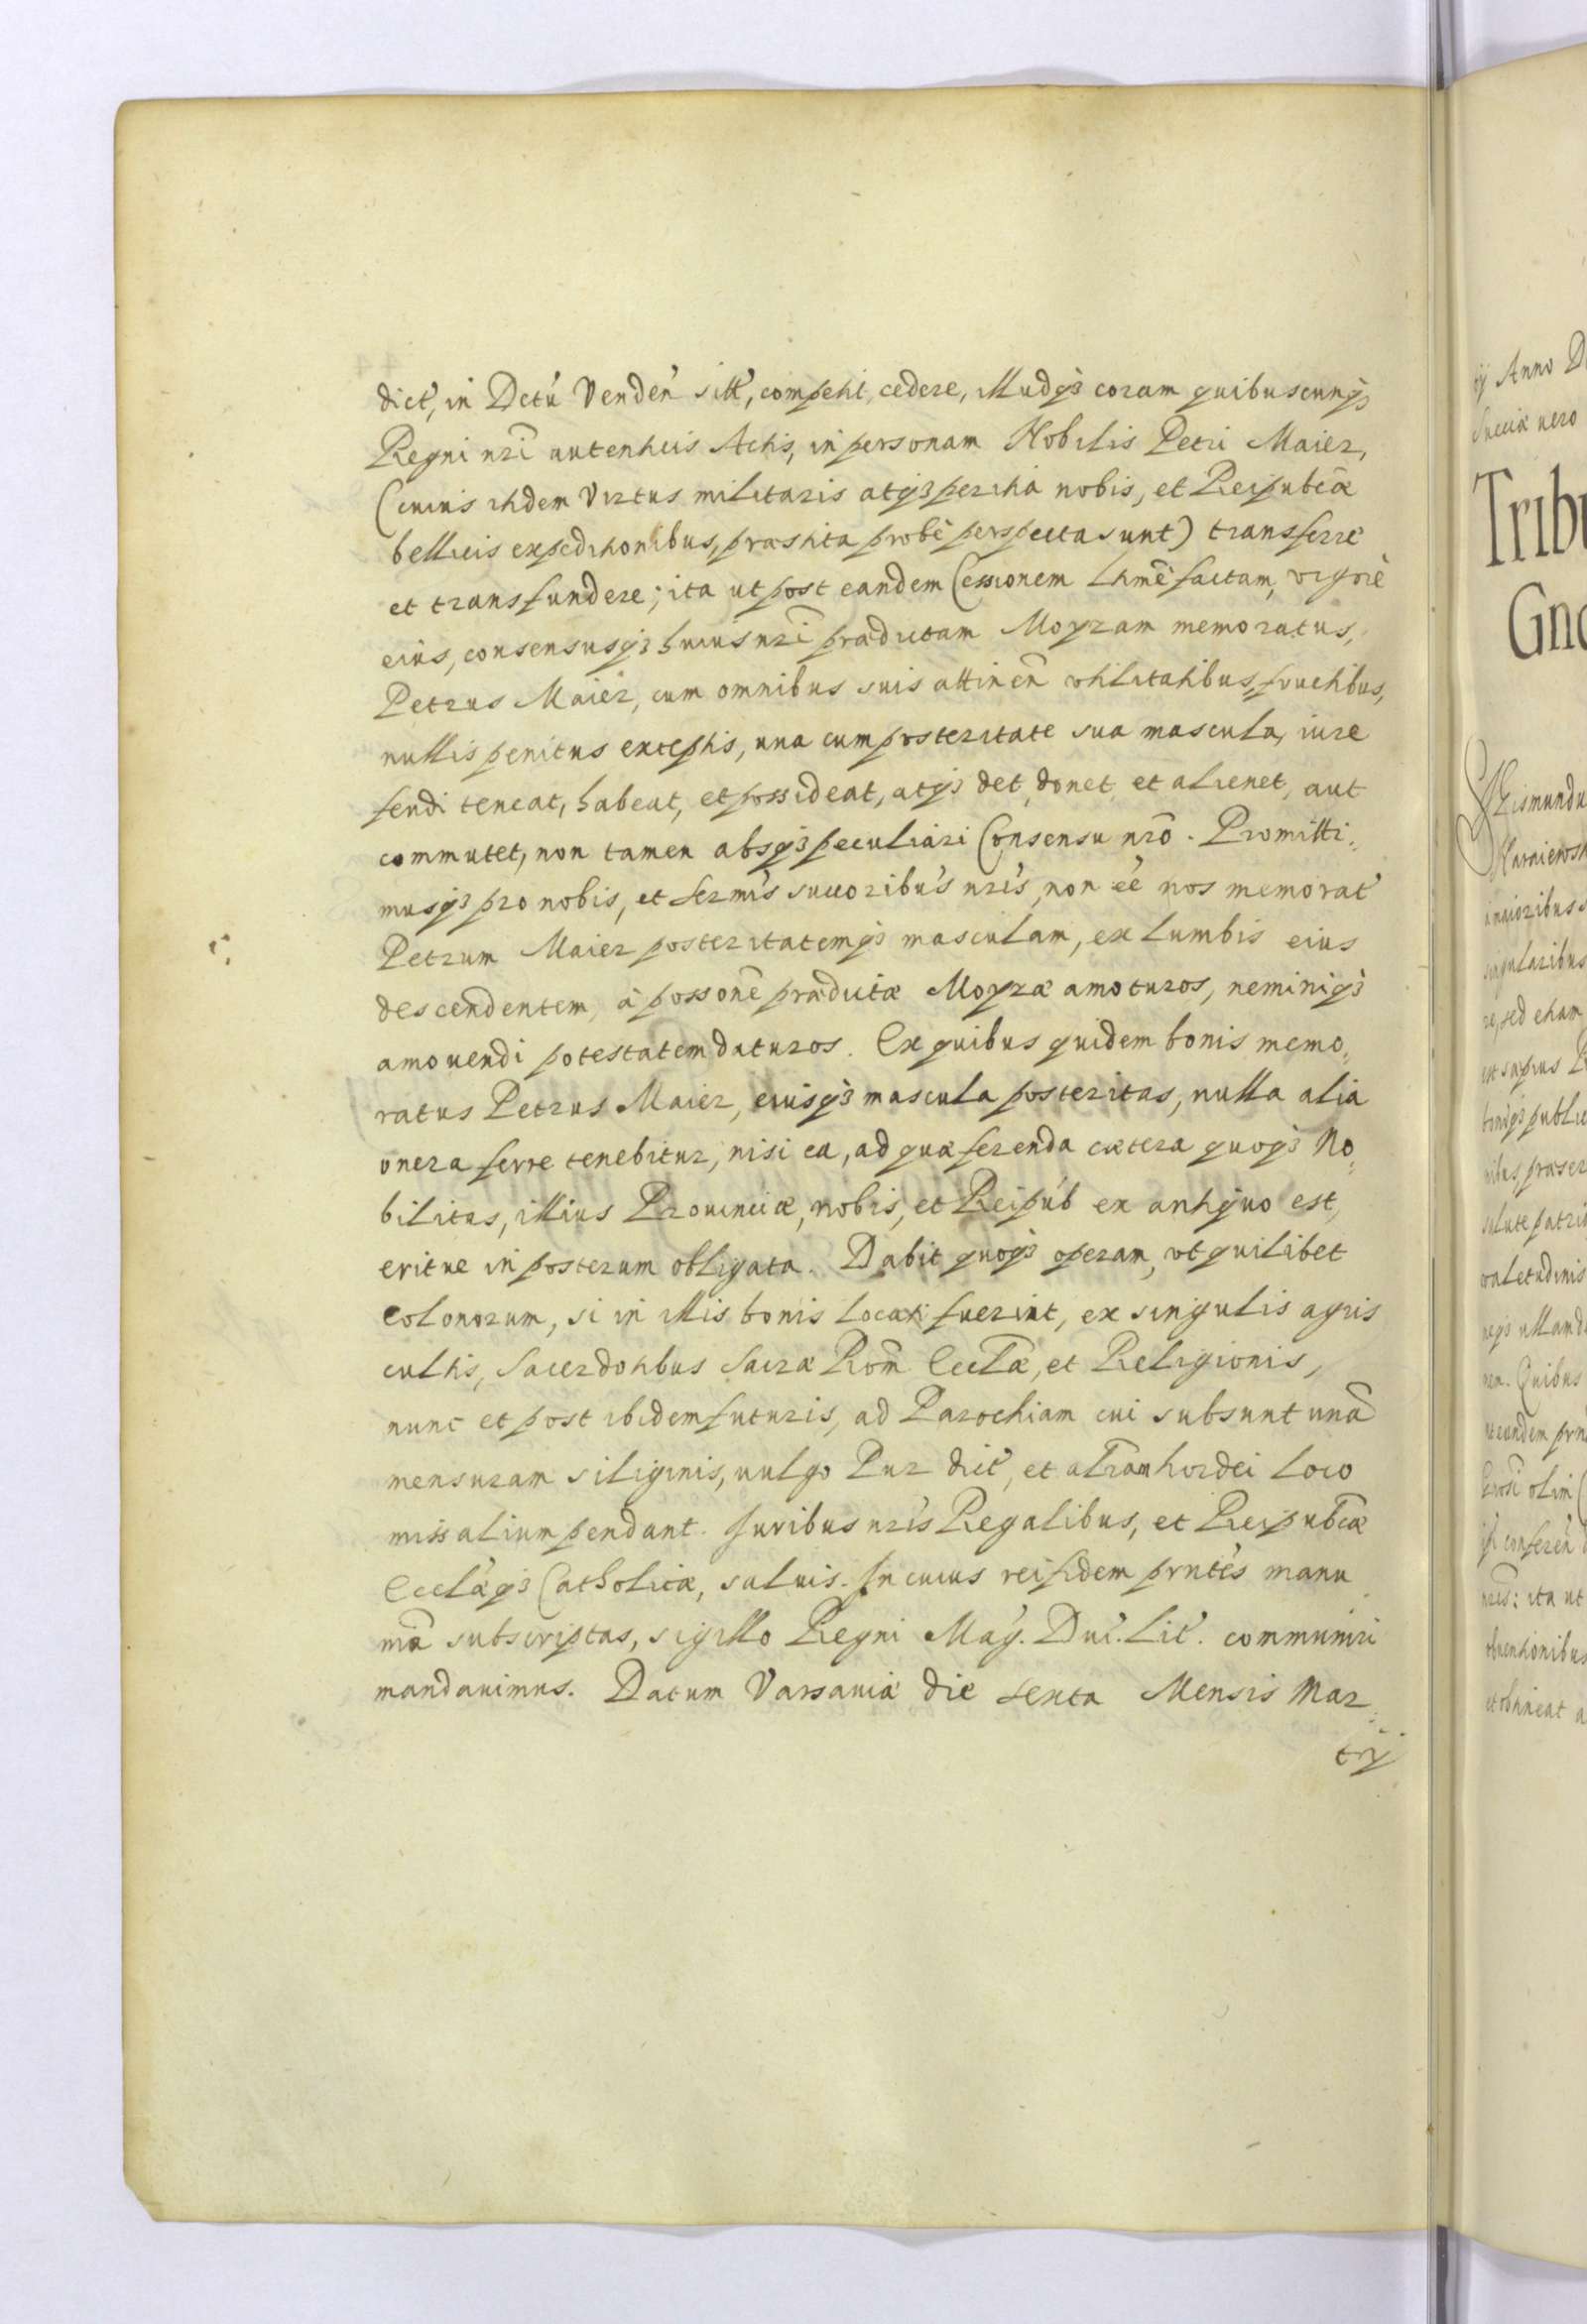 dict', in Dctu' Venden' sitt', competit, cedere, illudq3 coram quibuscunq3
Regni nri autenticis Actis, in personam Nobilis Petri Maier,
(cuius itidem Virtus militaris atq3 peritia nobis, et Reipubcæ
bellicis expeditionibus, præstita probè perspecta sunt) transferre
et transfundere; ita ut post eandem Cessionem ltmè factam, vigore
eius, consensusq3 huius nri prædictam Moyzam memoratus,
Petrus Maier, cum omnibus suis attinen utilitatibus, fructibus,
nullis penitus exceptis, una cum posteritate sua mascula, iure
feudi teneat, habeat, et possideat, atq3 det, donet, et alienet, aut
commutet, non tamen absq3 peculiari Consensu nro. Promitti„
musq3 pro nobis, et Sermis succoribus nris, non eê nos memorat'
Petrum Maier posteritatemq3 masculam, ex lumbis eius
descendentem, à possone prædictæ Moyzæ amoturos, neminiq3
amouendi potestatem daturos. Ex quibus quidem bonis memo„
ratus Petrus Maier, eiusq3 mascula posteritas, nulla alia
onera ferre tenebitur, nisi ea, ad quæ ferenda cætera quoq3 No„
bilitas, illius Prouinciæ, nobis, et Reipub ex antiquo est,
eritue in posterum obligata. Dabit quoq3 operam, vt quilibet
colonorum, si in illis bonis locati fuerint, ex singulis agris
cultis, Sacerdotibus Sacræ Rom Ecclæ, et Religionis,
nunc et post ibidem futuris, ad Parochiam cui subsunt unã
mensuram siliginis, uulgo Pur dict', et alram hordei loco
missalium pendant. Juribus nris Regalibus, et Reipubcæ
Ecclæq3 Catholicæ, saluis. In cuius rei fidem prntes manu
nra subscriptas, sigillo Regni Mag. Du. Lit. communiri
mandauimus. Datum Varsauiæ die sexta Mensis Mar„
tij
ij Anno D
Sueciæ uero
Tribu
Gno
Sigismundu
singularibus
re, sed etiam
est sæpius
salute patri
valetudinis
Quibus
olim
nris: ita ut
obuentionibus
et obtineat a